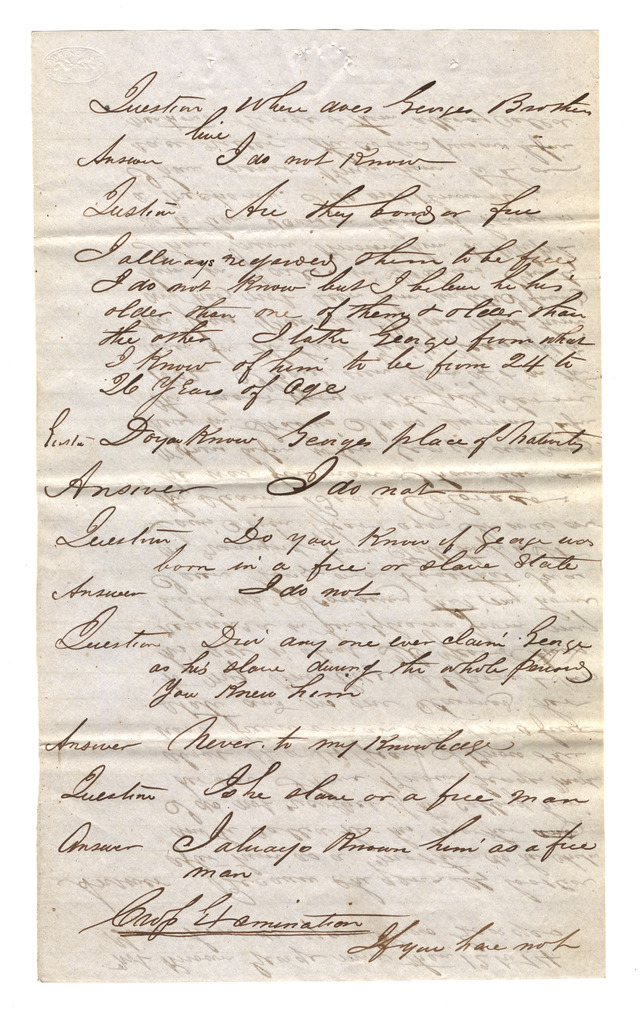 Question Where does Georges Brother
live
Answer I do not Know
Qustion Are they bond or free
I allways regarded them to be free
I do not Know but I beleive he his
older than one of them & older than
the other I take George from what
I Know of him to be from 24 to
26 Years of Age
Do you Know Georges place of Nativity
Answer I do not
Question Do you Know if George was
born in a free or slave State
Answer I do not
Question Did any one ever claim George
as his slave during the whole period
You Knew him
Answer Never to my Knowledge
Question Is he slave or a free man
Answer I always Known him as a free
man
Cross Examination
If you have not